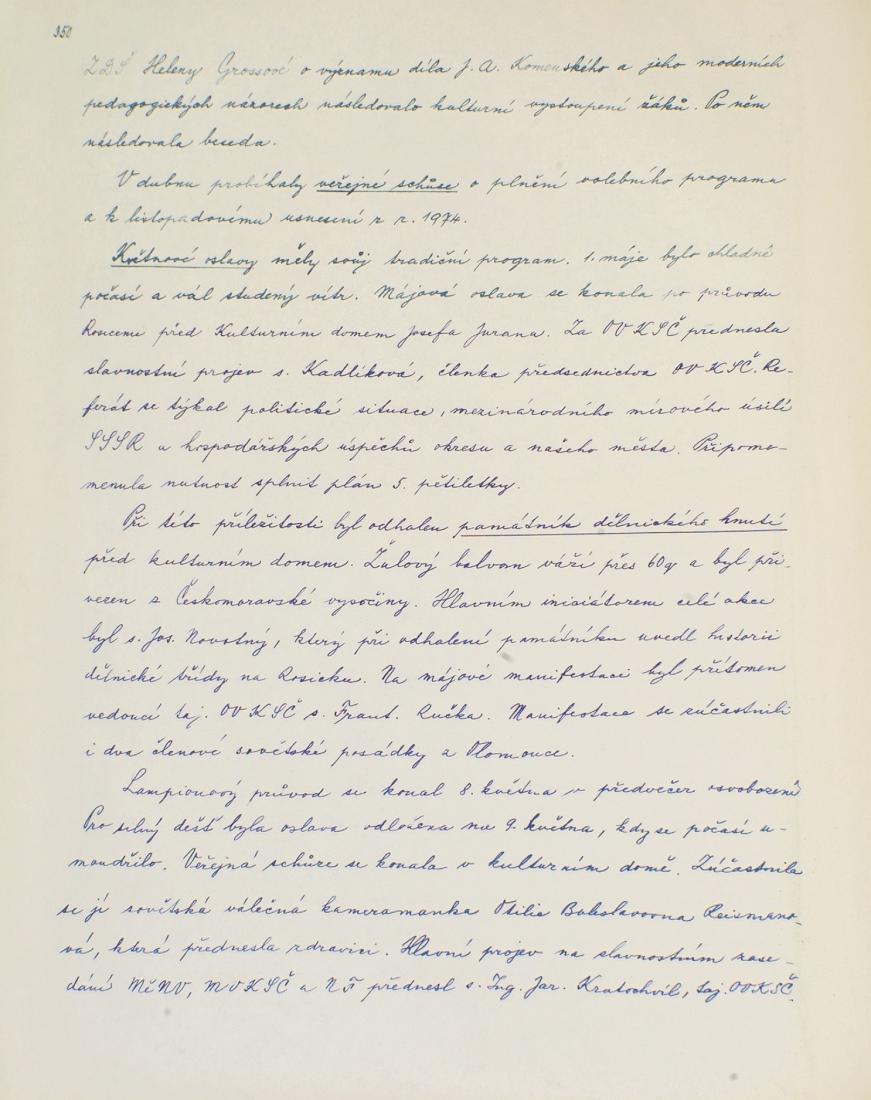 350
ZDŠ Heleny Grossové o významu díla J. A. Komenského a jeho moderních
pedagogických názorech následovalo kulturní vystoupení žáků. Po něm
následovala beseda.
V dubnu probíhaly veřejné schůze o plnění volebního programu
a k listopadovému usnesení z r. 1974.
Květnové oslavy měly svůj tradiční program. 1. máje bylo chladné
počasí a vál studený vítr. Májová oslava se konala po průvodu
Rosicemi před Kulturním domem Josefa Jurana. Za OV KSČ přednesla
slavnostní projev s. Kadlíková, členka předsednictva OV KSČ. Re-
ferát se týkal politické situace, mezinárodního mírového úsilí
SSSR a hospodářských úspěchů okresu a našeho města. Připomo-
menula nutnost splnit plán 5. pětiletky.
Při této příležitosti byl odhalen památník dělnického hnutí
před kulturním domem. Žulový balvan váží přes 60 q a byl při-
vezen z Českomoravské vysočiny. Hlavním iniciátorem celé akce
byl s. Jos. Novotný, který při odhalení památníku uvedl historii
dělnické třídy na Rosicku. Na májové manifestaci byl přítomen
vedoucí taj. OV KSČ s. Frant. Ručka. Manifestace se zúčastnili
i dva členové sovětské posádky z Olomouce.
Lampionový průvod se konal 8. května v předvečer osvobození
Pro silný déšť byla oslava odložena na 9. května, kdy se počasí u-
moudřilo. Veřejná schůze se konala v kulturním domě. Zúčastnila
se jí sovětská válečná kameramanka Otilie Boleslavovna Reismano-
vá, která přednesla zdravici. Hlavní projev na slavnostním zase-
dání MěNV, MVKSČ a NF přednesl s. Ing. Jar. Kratochvíl, taj. OVKSČ.